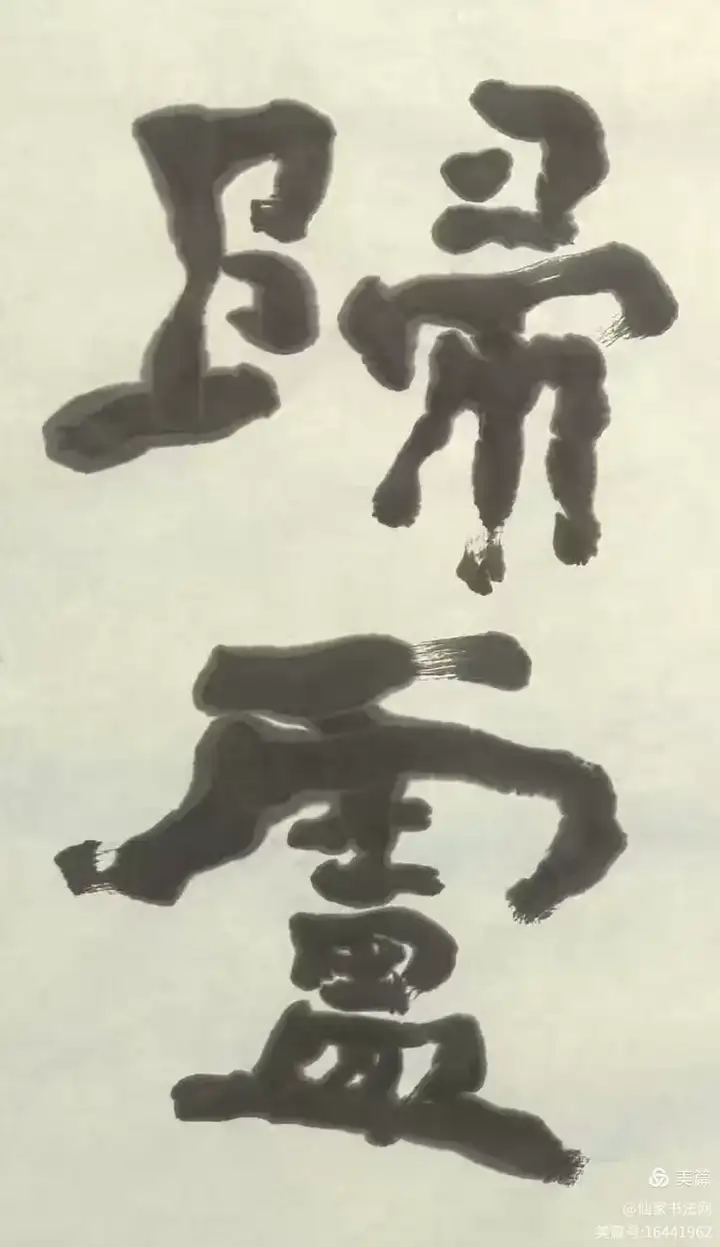 歸
美篇
@仙家书法网
美篇号:16441962